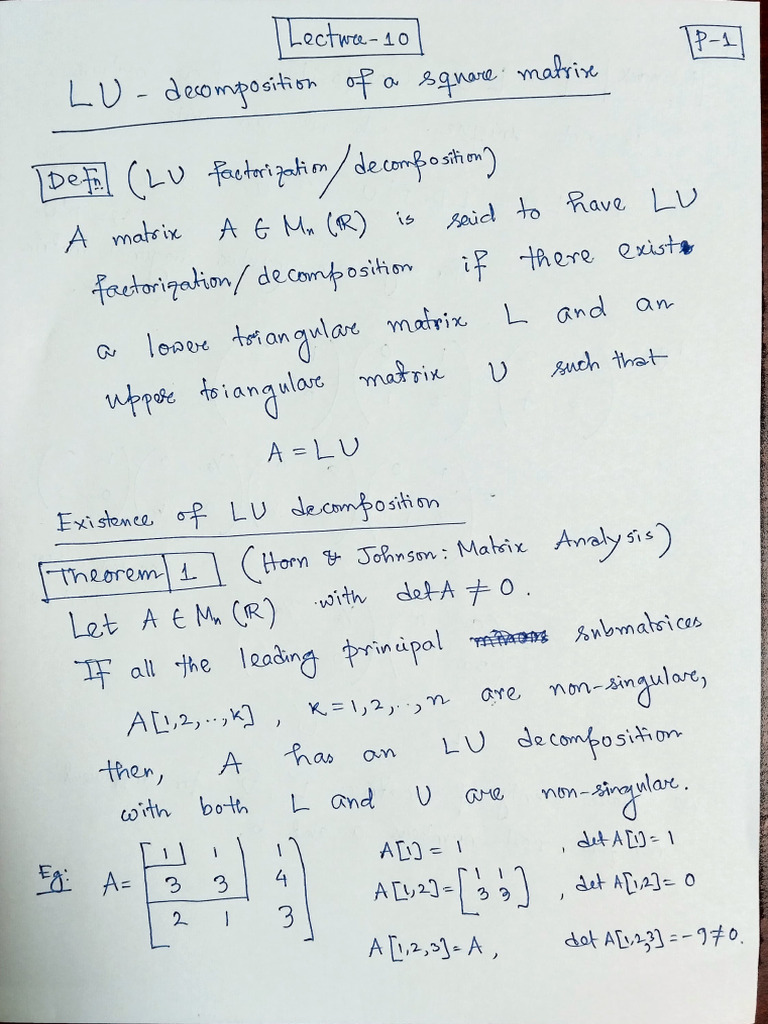 Lecture-10
P-1
LU - decomposition of a square matrix
Defn (LU factorization/decomposition)
A matrix A ∈ Mn (R) is said to have LU
factorization/decomposition if there exists
a lower triangular matrix L and an
upper triangular matrix U such that
A = LU
Existence of LU decomposition
Theorem 1 (Horn & Johnson: Matrix Analysis)
Let A ∈ Mn (R) with det A ≠ 0.
If all the leading principal submatrices
A[1,2,..,k], k=1,2,..,n are non-singular,
then, A has an LU decomposition
with both L and U are non-singular.
Eg: A= [1 1 1
3 3 4
2 1 3]
A[1] = 1, det A[1] = 1
A[1,2] = [1 1
3 3], det A[1,2] = 0
A[1,2,3] = A, det A[1,2,3] = -9 ≠ 0.